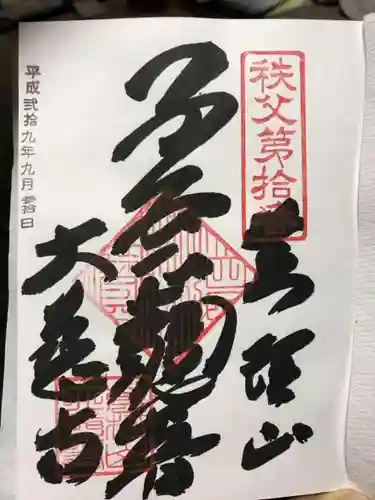 秩父第拾番
萬松山
子安観世音
大慈寺
平成弐拾九年九月 日